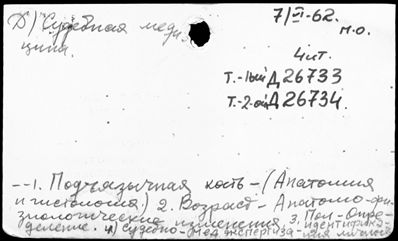 Д/ Судебная меди
цина.
7/VI-62.
м.о.
4шт.
Т.-1ый Д 26733
Т.-2-ой Д 26734.
--1. Подъязычная кость-(Анатомия
и гистология.) 2. Возраст- Анатомо-фи-
зиологические изменения. 3. Пол-Опре-
деление. 4) Судебно-мед. экспертиза- идентифика-
ция личност